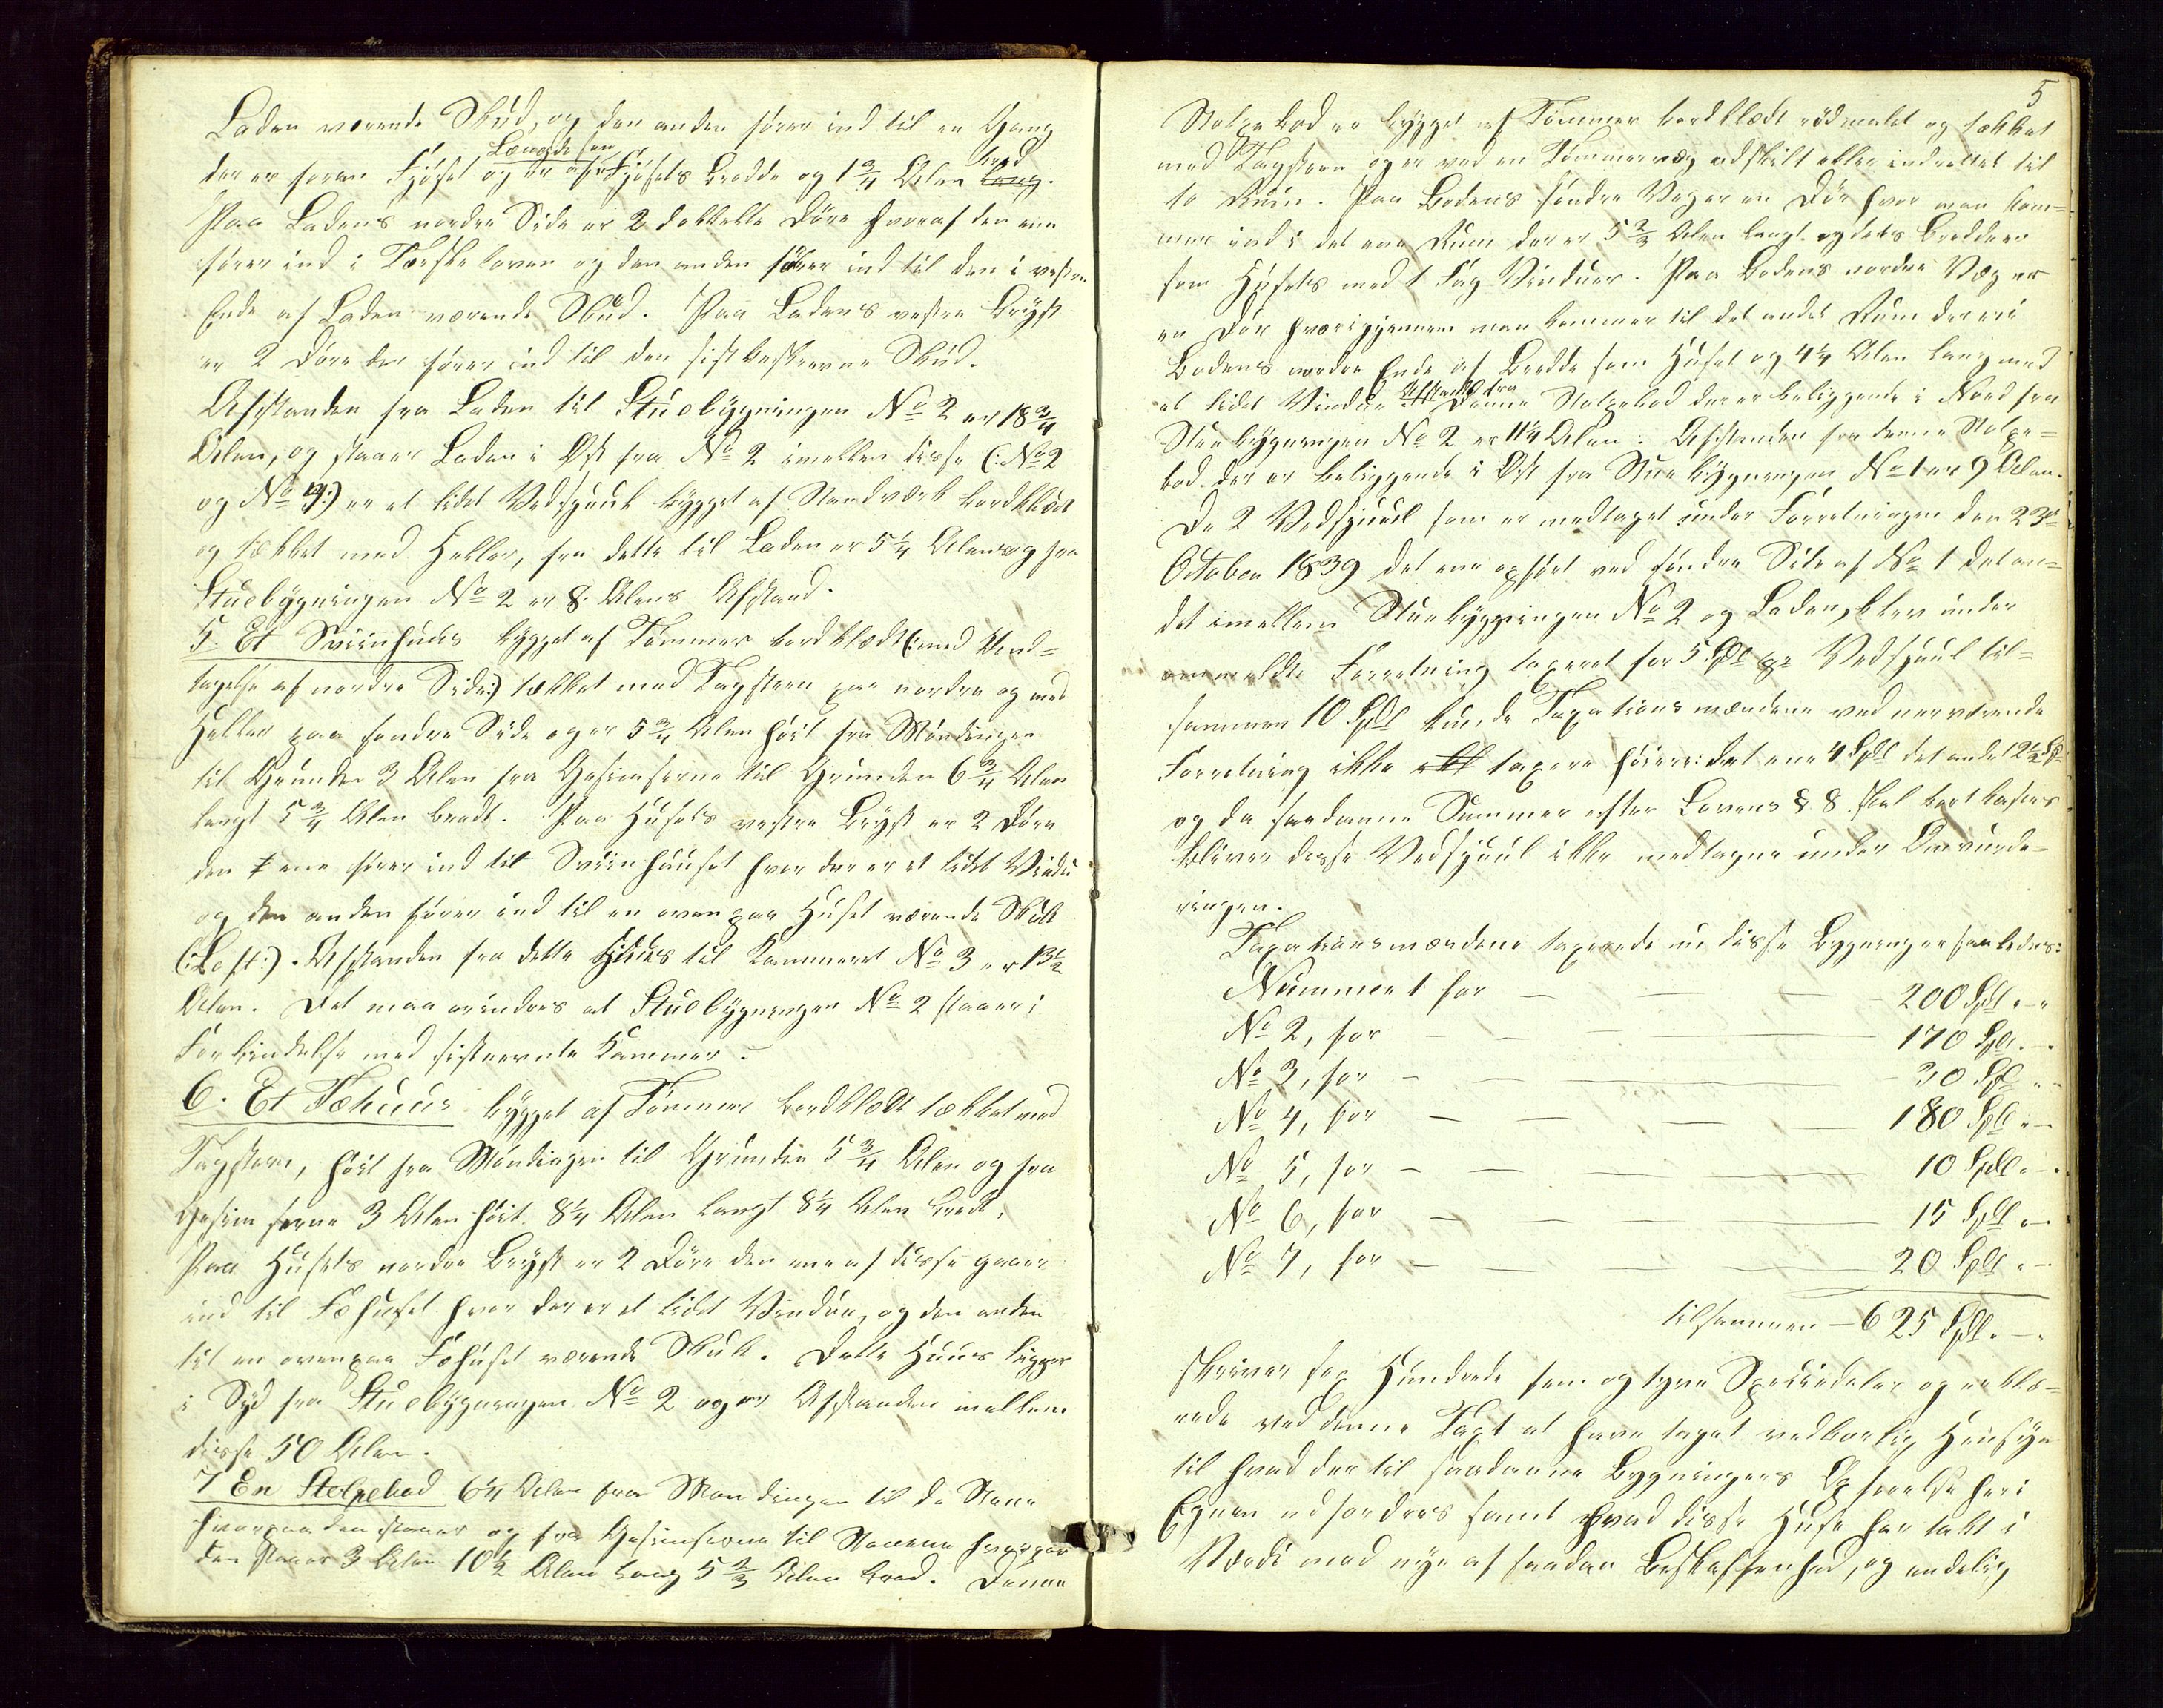 Laden værende Skud, og den anden fører ind til en Gang
Længde som bred
der er foran Fjøset og er af Fjøsets Bredde og 1 3/4 Alen lang.
Paa Ladens nordre Side er 2 dobbelte Døre hvoraf den ene
fører ind i Tærskeloven og den anden fører ind til den i vestre
Ende af Laden værende Skud. Paa Ladens vestre Bryst
er 2 Døre der fører ind til den sistbeskrevne Skud.
Afstanden fra Laden til Stuebygningen No 2 er 18 3/4
Alen, og staaer Laden i Øst fra No 2 imellem disse (: No 2
og No 4 :) er et lidet Vedskjuul bygget af Standværk bordklædt
og tækket med Heller, fra dette til Laden er 5 1/4 Alen og fra
Stuebygningen No 2 er 8 Alens Afstand.
5. Et Sviinhuus bygget af Tømmer bordklædt (: med Und=
tagelse af nordre Side :) tækket med Tagsteen paa nordre og med
Heller paa søndre Side og er 5 3/4 Alen høit fra Mønningen
til Grunden 3 Alen fra Gesimserne til Grunden 6 3/4 Alen
langt 5 3/4 Alen bredt. Paa Husets vestre Bryst er 2 Døre
den ene fører ind til Sviinhuuset hvor der er et lidet Vindu
og den anden fører ind til en ovenpaa Huset værende Skut
(: Loft :). Afstanden fra dette Huus til Kammeret No 3 er 13 1/2
Alen. Det maa erindres at Stuebygningen No 2 staaer i
Forbindelse med sistnevnte Kammer.
6. Et Fæhuus bygget af Tømmer bordklædt tækket med
Tagsteen, høit fra Mønningen til Grunden 5 3/4 Alen og fra
Gesimserne 3 Alen høit. 8 1/4 Alen langt 8 1/4 Alen bredt.
Paa Husets nordre Bryst er 2 Døre den ene af disse gaaer
ind til Fæhuset hvor der er et lidet Vindue, og den anden
til en ovenpaa Fæhuset værende Skut. Dette Huus ligger
i Syd fra Stuebygningen No 2 og er Afstanden mellem
disse 50 Alen.
7 En Stolpebod 6 1/4 Alen fra Mønningen til de Stene
hvorpaa den staaer og fra Gesimserne til Stenene hvorpaa
den staaer 3 Alen 10 1/2 Alen lang 5 2/3 Alen bred. Denne
5
Stolpebod er bygget af Tømmer bordklædt rødmalet og tækket
med Tagsteen og er ved en Tømmervæg adskilt eller indrettet til
to Rum. Paa Bodens søndre Væg er en Dør hvor man kom=
mer ind i det ene Rum der er 5 2/3 Alen langt og dets Bredde er
som Husets med 1 Fag Vinduer. Paa Bodens nordre Væg er
en Dør hvorigjennem man kommer til det andet Rum der er i
Bodens nordre Ende af Bredde som Huset og 4 1/4 Alen lang med
et lidet Vindue. Afstanden fra Denne Stolpebod der er beliggende i Nord fra
Stuebygningen No 2 er 11 1/4 Alen. Afstanden fra denne Stolpe=
bod der er beliggende i Øst fra Stuebygningen No 1 er 9 Alen.
De 2 Vedskjuul som er medtaget under Forretningen den 23de
October 1839 det ene opført ved søndre Side af No 1 det an=
det imellem Stuebygningen No 2 og Laden, blev under
ommeldte Forretning taxeret for 5 Spdl pr Vedskjuul til=
sammen 10 Spdl kunde Taxationsmændene ved nærværende
Forretning ikke taxere høiere: det ene 4 Spdl det andet 2 1/2 Spd
og da saadanne Summer efter Lovens § 8 skal bortkastes
bliver disse Vedskjuul ikke medtagne under Omvurde=
ringen.
Taxationsmændene taxerede nu disse Bygninger saaledes:
Nummer 1 for — — — 200 Spdl " "
No 2, for — — — 170 Spdl. —
No 3, for — — — 30 Spdl " "
No 4, for — — — 180 Spdl " —
No 5, for — — — 10 Spdl. —
No 6, for — — — 15 Spdl " —
No 7, for — — — 20 Spdl " —
tilsammen — 625 Spdl. —
skriver sex Hundrede fem og tyve Speciedaler og erklæ=
rede ved denne Taxt at have taget vedbørlig Hensyn
til hvad der til saadanne Bygningers Opførelse her i
Egnen udfordres samt hvad disse Huse har tabt i
Værdi mod nye af saadan Beskaffenhed, og endelig